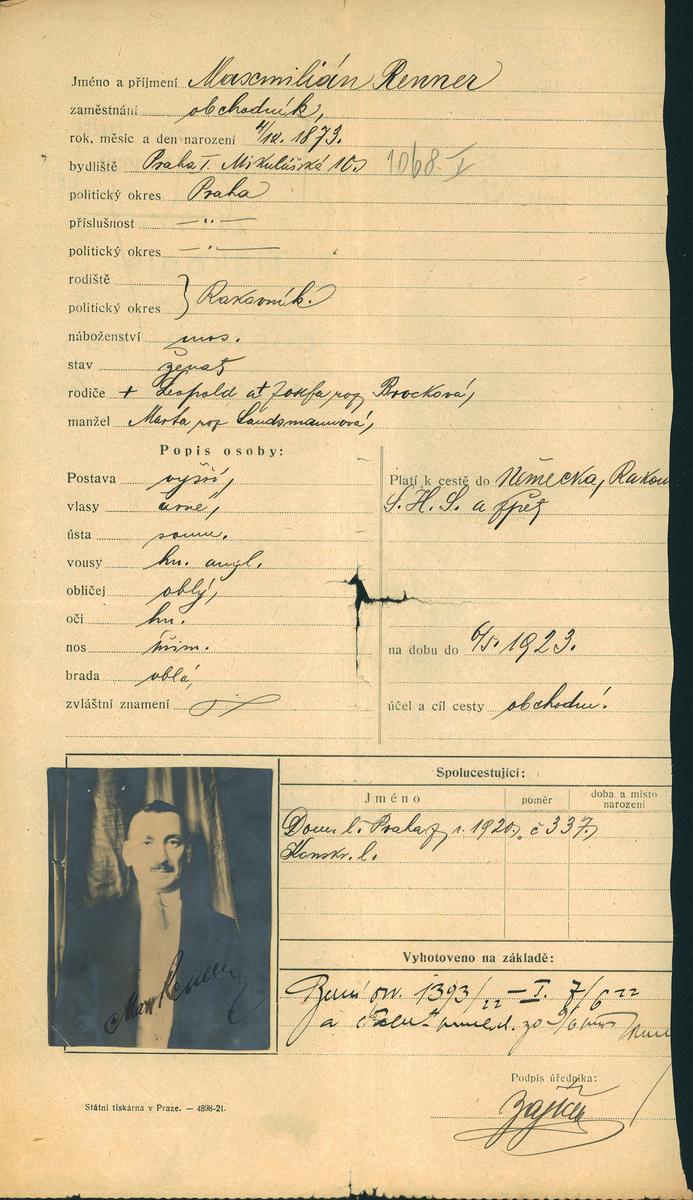 Jméno a příjmení Maxmilián Renner
zaměstnání obchodník,
rok, měsíc a den narození 4/12. 1873.
bydliště Praha I. Mikulášská 10. 1068-I
politický okres Praha
příslušnost — „ —
politický okres — „ —
rodiště
politický okres } Rakovník.
náboženství mos.
stav ženat
rodiče + Leopold a † Josefa roz. Brocková,
manžel Marta roz. Landsmannová,
Popis osoby:
Postava vyšší,
vlasy černé,
ústa soum.
vousy hn. angl.
obličej oblý,
oči hn.
nos přim.
brada oblá,
zvláštní znamení
Platí k cestě do Německa, Rakou
S.H.S. a zpět
na dobu do 6/5. 1923.
účel a cíl cesty obchodní.
Spolucestující:
Jméno poměr doba a místo narození
Dom. l. Praha r. 1920, č 337,
Konskr. l.
Vyhotoveno na základě:
1393/22 — I. 7/6 22
a
Max Renner
Podpis úředníka:
Státní tiskárna v Praze. — 4898-21.